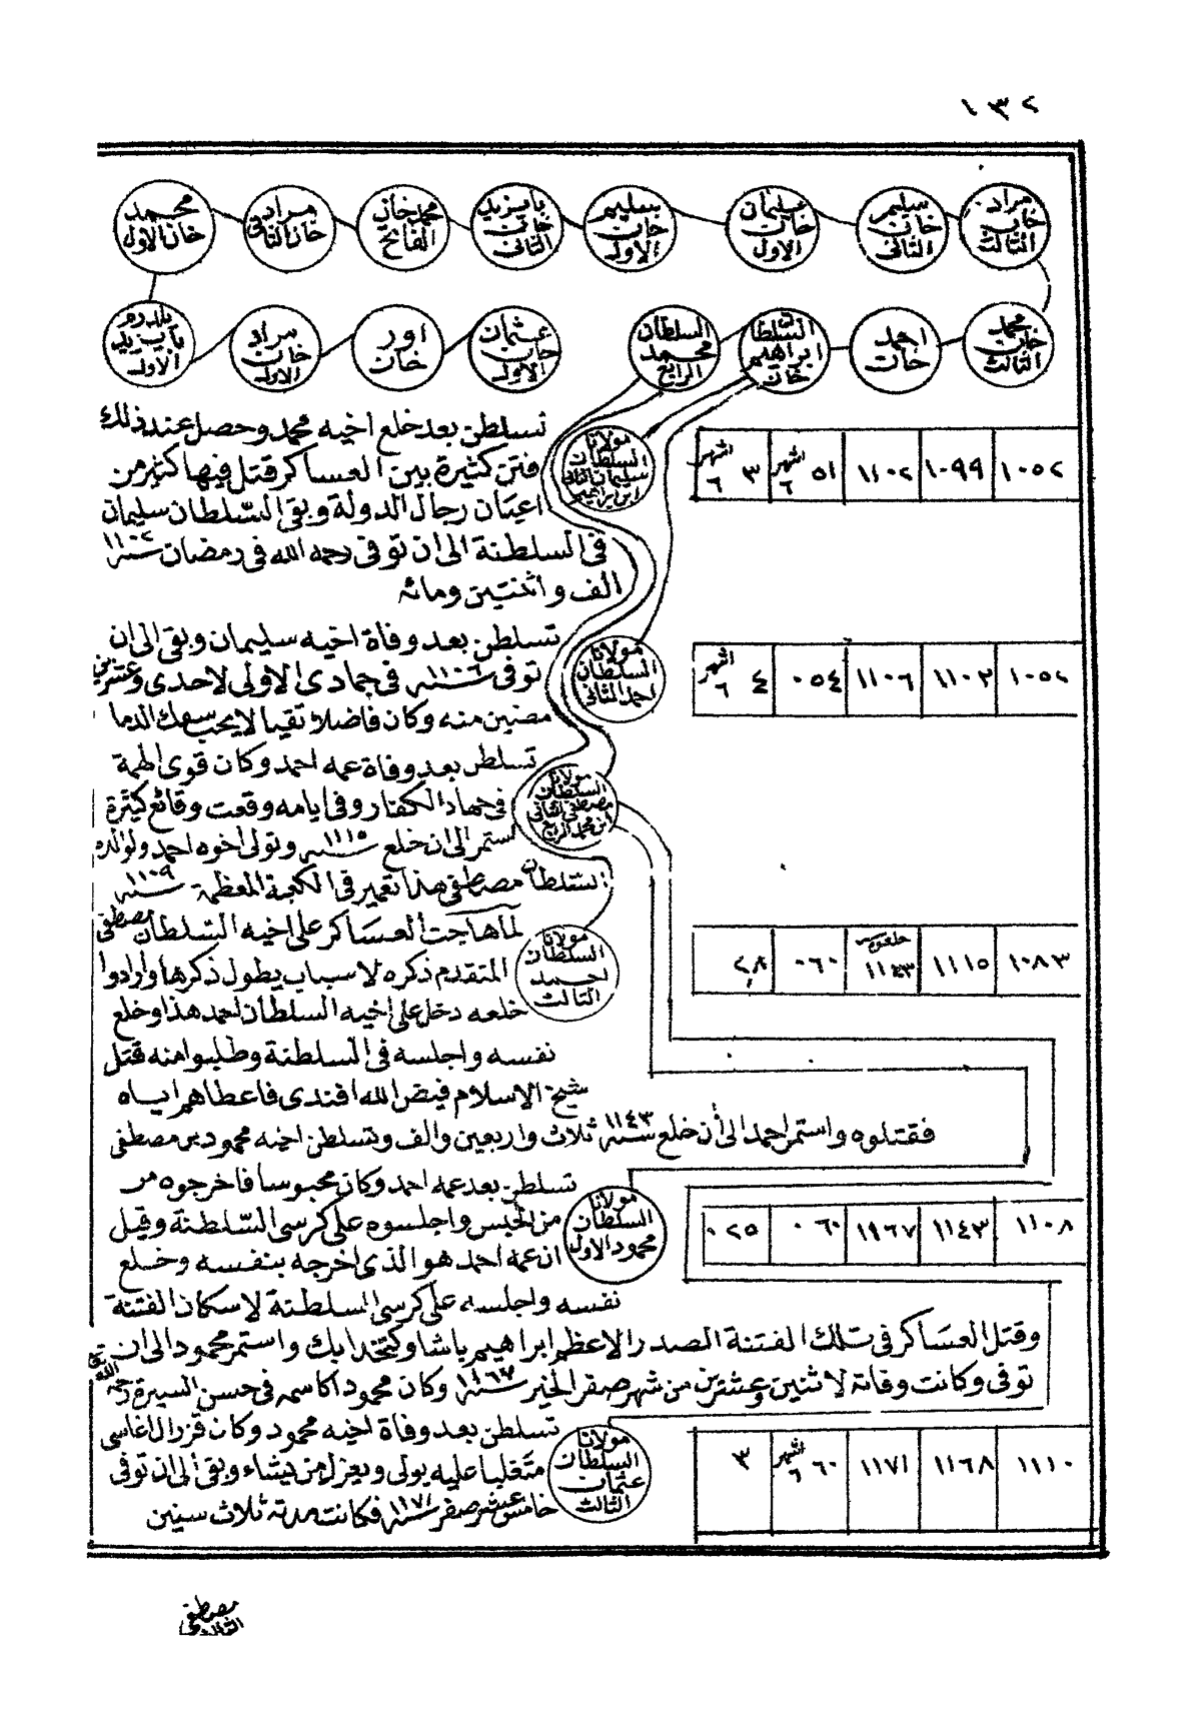 ١٣٢
مراد خان الثالث
سليم خان الثاني
سليمان خان الاول
سليم خان الاول
بايزيد خان الثاني
محمد خان الفاتح
مراد خان الثاني
محمد خان الاول
محمد خان الثالث
احمد خان
السلطان ابراهيم خان
السلطان محمد الرابع
عثمان خان الاول
اورخان
مراد خان الاول
يلدرم بايزيد الاول
١٠٥٢ ١٠٩٩ ١١٠٢ ٥١ اشهر ٦ ٣ اشهر ٦
مولانا السلطان سليمان الثاني ابن ابراهيم
تسلطن بعد خلع اخيه محمد وحصل عند ذلك
فتن كثيرة بين العساكر قتل فيها كثير من
اعيان رجال الدولة وبقى السلطان سليمان
فى السلطنة الى ان توفى رحمه الله فى رمضان سنة ١١٠٢
الف واثنتين ومائه
١٠٥٢ ١١٠٢ ١١٠٦ ٠٥٤ ٤ اشهر ٦
مولانا السلطان احمد الثانى
تسلطن بعد وفاة اخيه سليمان وبقى الى ان
توفى سنة ١١٠٦ فى جمادى الاولى لاحدى وعشرين
مضين منه وكان فاضلا تقيا لا يحب سفك الدما
مولانا السلطان مصطفى الثانى ابن محمد الرابع
تسلطن بعد وفاة عمه احمد وكان قوى الهمة
فى جهاد الكفار وفى ايامه وقعت وقائع كثيرة
استمر الى ان خلع سنة ١١١٥ وتولى اخوه احمد ولوالده
السلطان مصطفى هذا تعمير فى الكعبة المعظمة سنة ١١٠٩
١٠٨٣ ١١١٥ خلعه ١١٤٣ ٠٦٠ ٢٨
مولانا السلطان احمد الثالث
لما هاجت العساكر على اخيه السلطان مصطفى
المتقدم ذكره لاسباب يطول ذكرها وارادوا
خلعه دخل على اخيه السلطان احمد هذا وخلع
نفسه واجلسه فى السلطنة وطلبوا منه قتل
شيخ الاسلام فيض الله افندى فاعطاهم اياه
فقتلوه واستمر احمد الى أن خلع سنة ١١٤٣ ثلاث واربعين والف وتسلطن اخيه محمود بن مصطفى
١١٠٨ ١١٤٣ ١١٦٧ ٠٦٠ ٠٢٥
مولانا السلطان محمود الاول
تسلطن بعد عمه احمد وكان محبوسا فاخرجوه من
من الحبس واجلسوه على كرسى السلطنة وقيل
ان عمه احمد هو الذى اخرجه بنفسه وخلع
نفسه واجلسه على كرسى السلطنة لاسكان الفتنة
وقتل العساكر فى تلك الفتنة الصدر الاعظم ابراهيم باشا وكتخدا بك واستمر محمود الى ان
توفى وكانت وفاته لاثنتين وعشرين من شهر صفر الخير سنة ١١٦٧ وكان محمود اكاسمه فى حسن السيرة رحمه الله تع
١١١٠ ١١٦٨ ١١٧١ ٦٠ اشهر ٦ ٣
مولانا السلطان عثمان الثالث
تسلطن بعد وفاة اخيه محمود وكان قزلر اغاسى
متغلبا عليه يولى ويعزل من يشاء وبقى الى ان توفى
خامس عشر صفر سنة ١١٧١ فكانت مدته ثلاث سنين
مصطفى